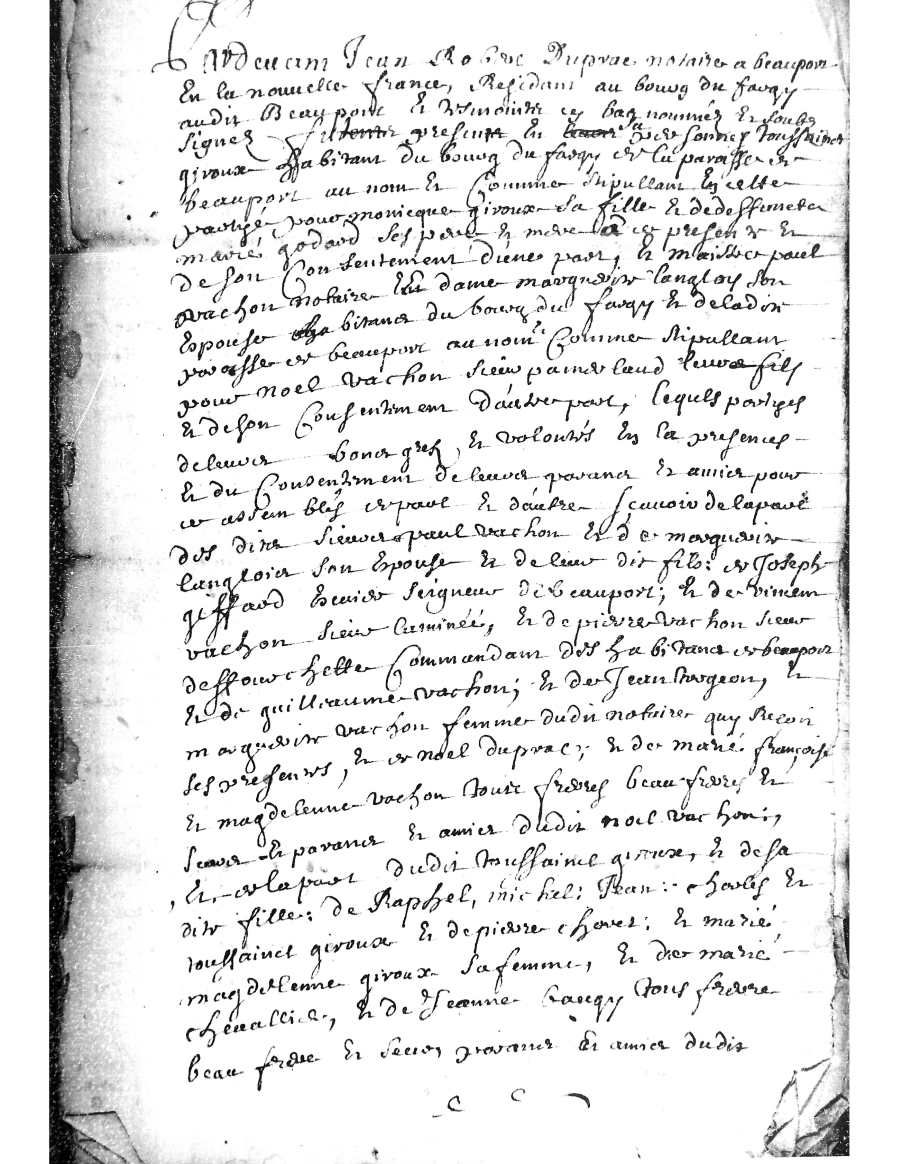 Pardevam Jean Robert Duprac notaire a beauport
En la nouvelle france, Residant au bourg du fargy
audit Beauport Et tesmoints cy bas nommés Et soubs
signez presents En personnes toussainct
giroux habitant du bourg du fargy de la paroisse de
beauport au nom Et Comme stipullant En cette
partye pour monicque giroux sa fille Et dedeffuncte
marié godard ses pere Et mere a ce presente Et
de son Consentement d'une part, Et maistre paul
vachon notaire Et dame margueritte langloy son
Epouse habitans du bourg du fargy Et deladite
paroisse de beauport au nom Comme stipullant
pour noel vachon sieur pamerlaud leure fils
Et de son Consentement d'autre part, lequels partyes
deleurs bones grez, Et volontés En la presences
Et du Consentement deleurs parans Et amies pour
ce assemblés de part Et d'autre scavoir de la part
des dits sieurs paul vachon Et de margueritte
langlois son Epouse Et de leur dit fils: de Joseph
giffard Ecuier seigneur de beauport; Et de vincent
vachon sieur laminéé, Et de pierre vachon sieur
desfourchette Commandant des habitans de beauport
Et de guilleaume vachon; Et de Jean turgeon, Et
margueritte vachon femme dudit notaire quy Recoit
ses presentes, Et de noel duprac; Et de marié françoise
Et magdelenne vachon tous freres beau freres Et
seurs Et parans Et amies dudit noel vachon;
Et de la part dudit toussainct giroux, Et de sa
dite fille: de Raphel, michel: Jean: charles Et
toussainct giroux Et de pierre choret: Et marié
magdelenne giroux sa femme, Et de marié
chevallier, Et de Jeanne baugy tous frere
beau frere Et seurs parans Et amies dudit